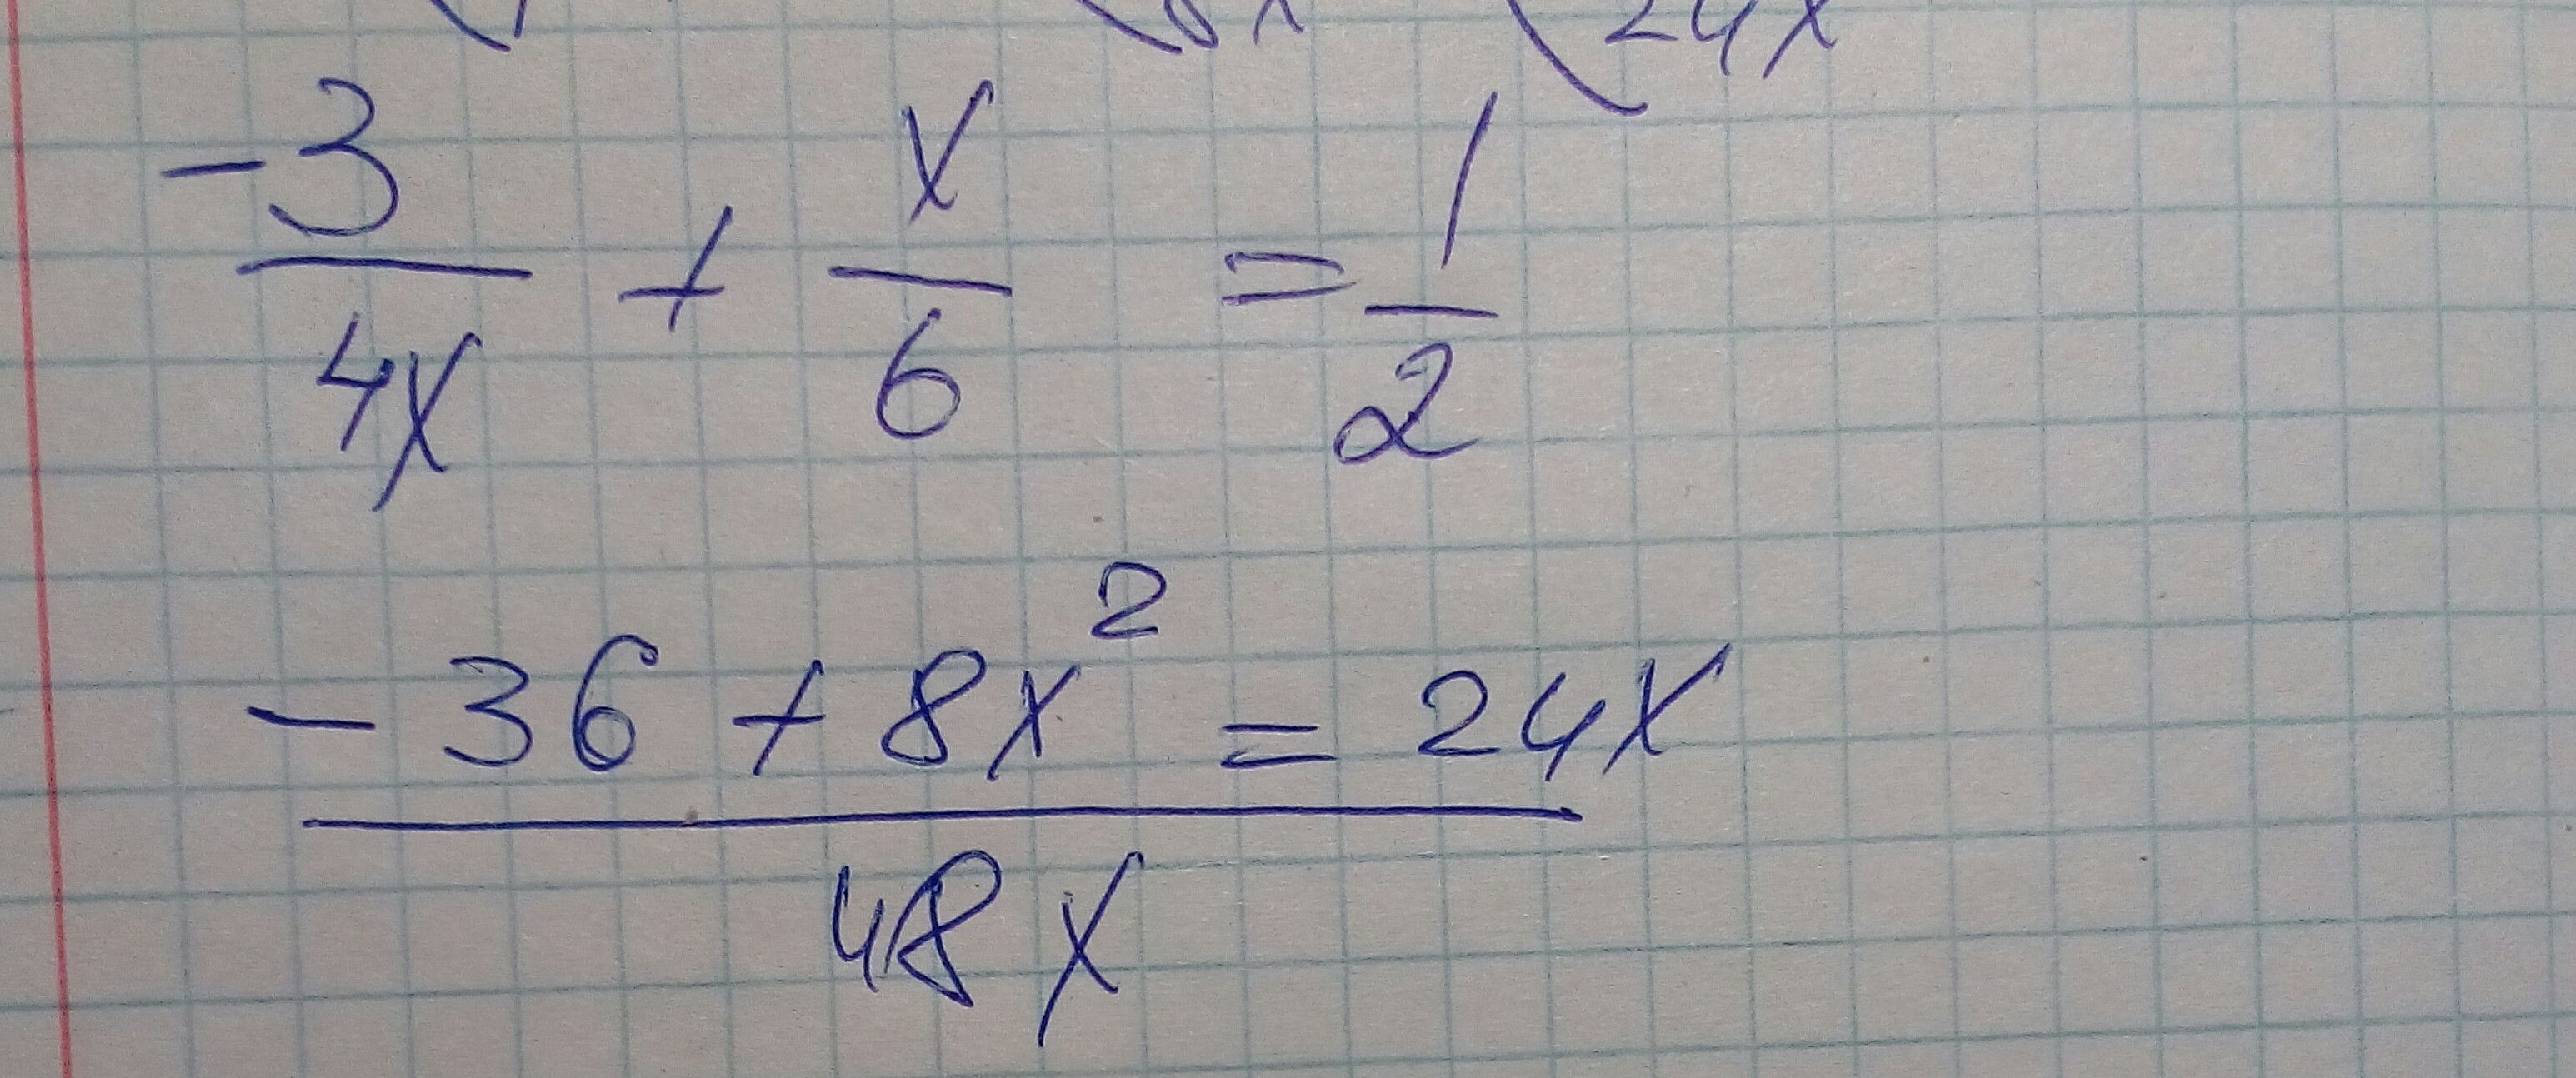 24x
-3/4x + x/6 = 1/2
-36 + 8x² = 24x
48x